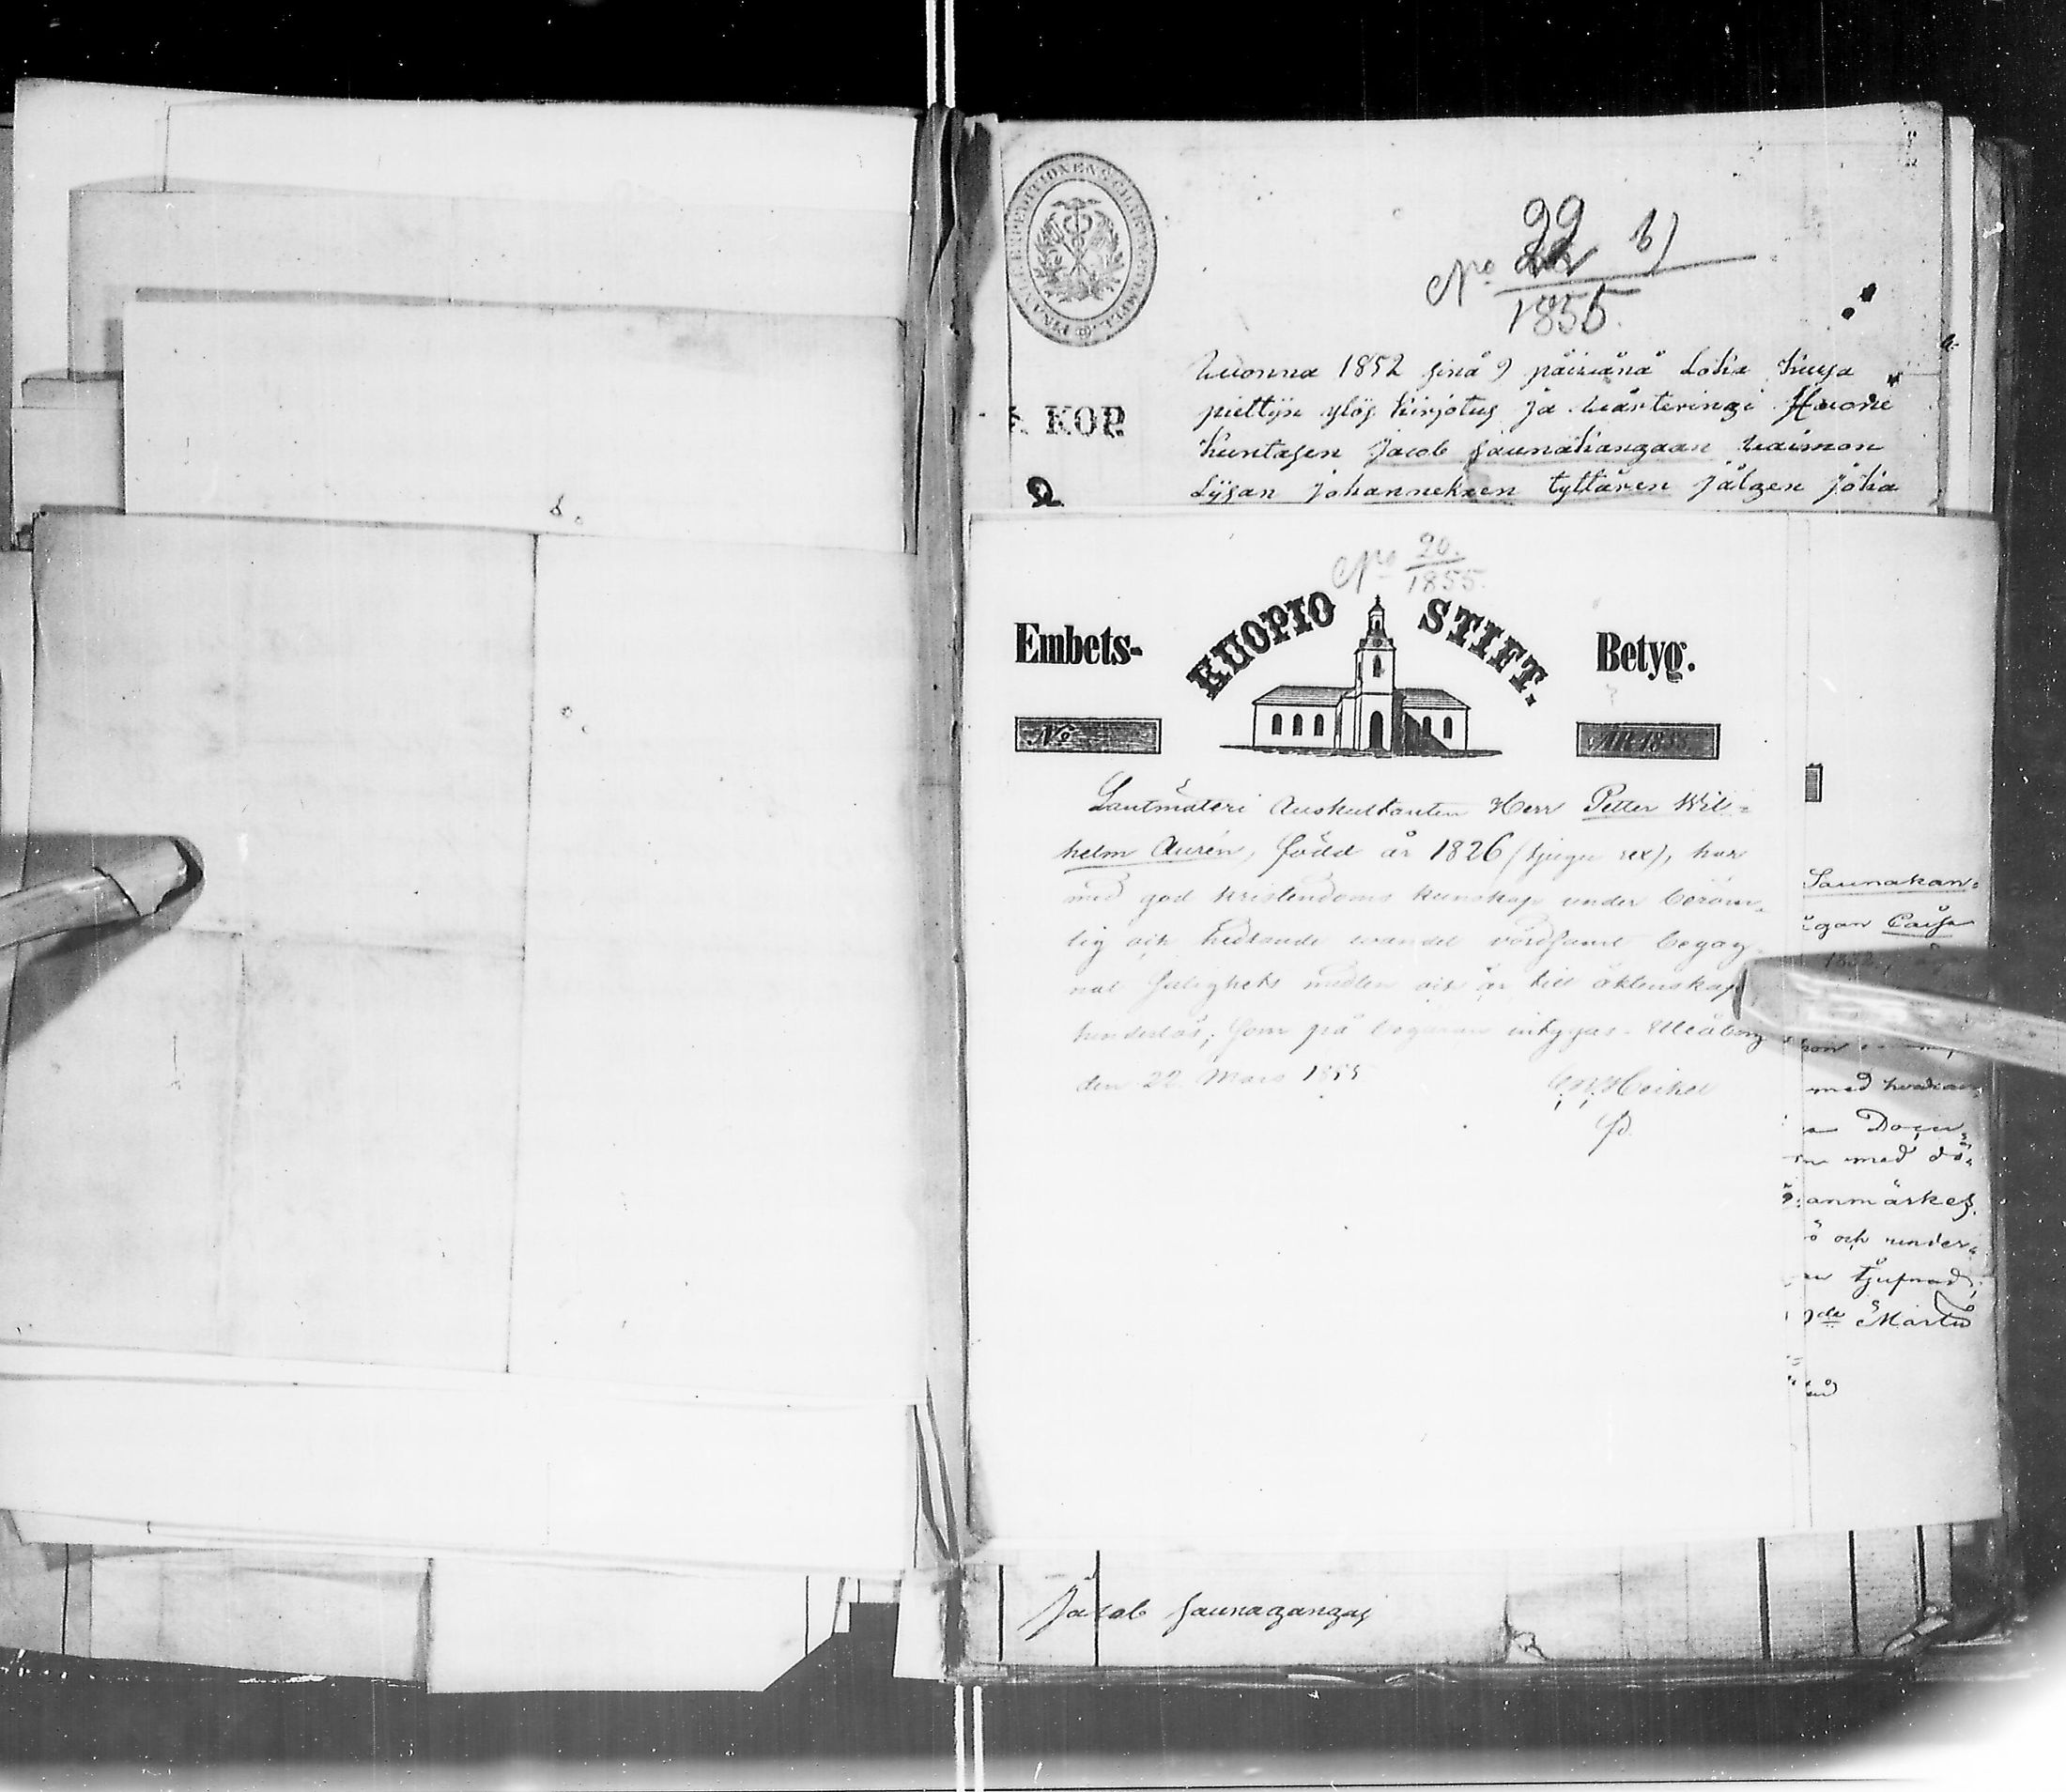 FINANCE EXPEDITIONENS CHARTÆ STEMPEL
No 22 b)
1855.
Wuonna 1852 sinä 9 päivänä Loka Kuusa
piettijn ylös kirjotus ja wärteringi Huone
Kuntasen Jacob Saunakangaan waimon
Lijsan Johanneksen tyttären jälgen joka
KOP.
2
No 20.
1855.
Embets-
KUOPIO STIFT.
Betyg.
No
ÅR 1855
Lantmäteri Auskultanten Herr Petter Wil-
helm Aurén, född år 1826 (tjugu sex), har
med god kristendoms kunskap under beröm-
lig och hedrande vandel vördsamt begag-
nat salighets medlen och är till äktenskap
hinderlös; som på begäran intygas. Uleåborg
den 22 Mars 1855
C. M. Heikel
Saunakan-
Caisa
1852,
med hvadan
Docu-
med dö-
anmärkes.
och under-
tjufnad,
Mårtid
Jacob Saunagangas